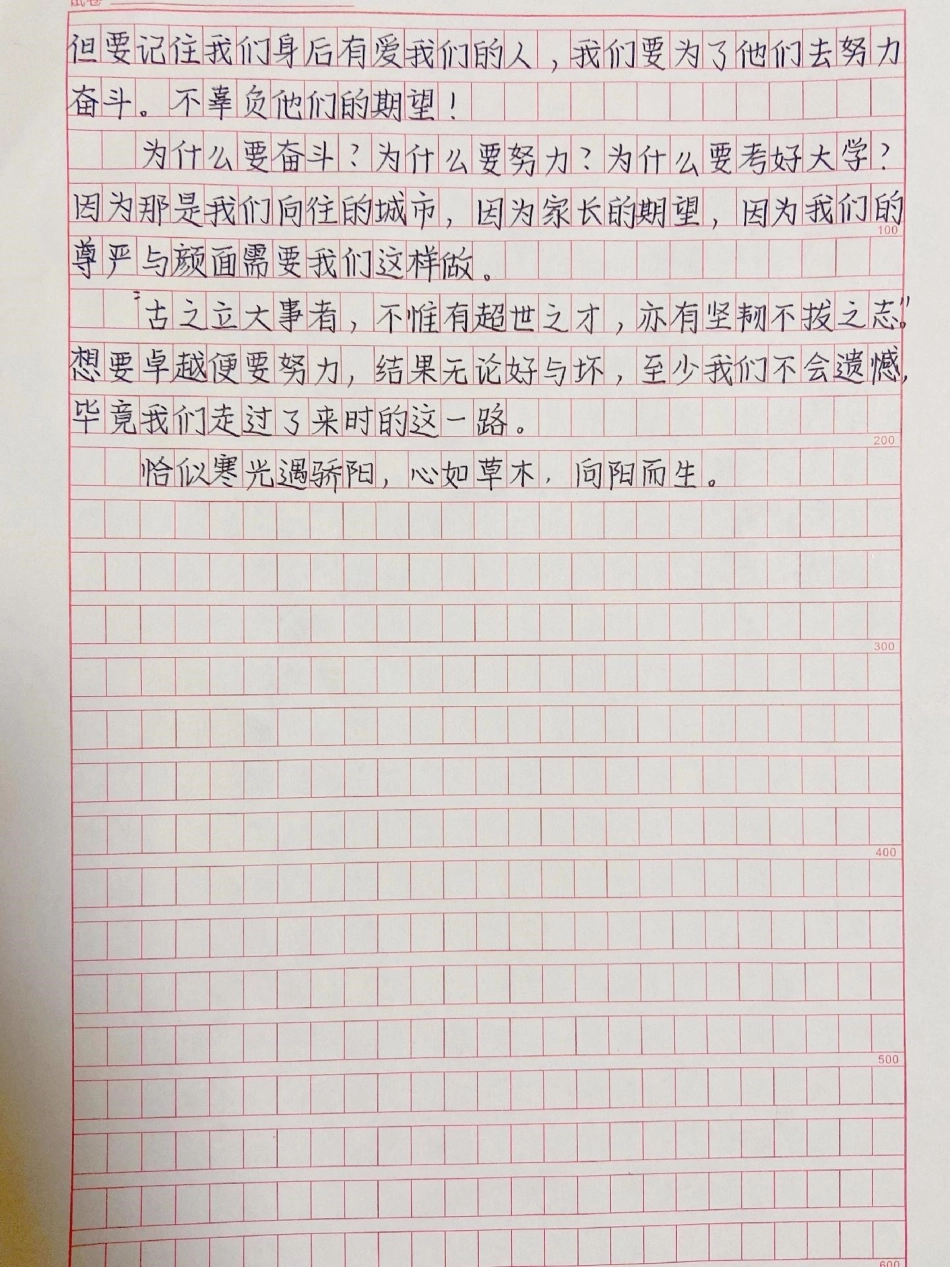 试卷
但要记住我们身后有爱我们的人，我们要为了他们去努力
奋斗。不辜负他们的期望！
为什么要奋斗？为什么要努力？为什么要考好大学？
因为那是我们向往的城市，因为家长的期望，因为我们的
100
尊严与颜面需要我们这样做。
“古之立大事者，不惟有超世之才，亦有坚韧不拔之志”。
想要卓越便要努力，结果无论好与坏，至少我们不会遗憾，
毕竟我们走过了来时的这一路。
200
恰似寒光遇骄阳，心如草木，向阳而生。
300
400
500
600